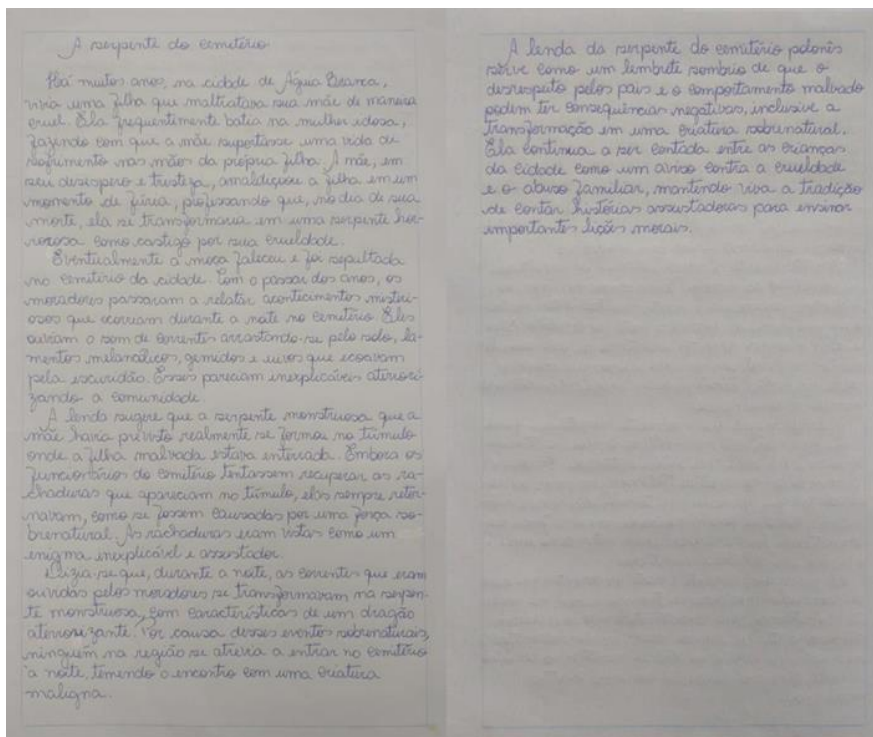 A serpente do cemitério
Há muitos anos, na cidade de Água Branca,
vivia uma filha que maltratava sua mãe de maneira
cruel. Ela frequentimente batia na mulher idosa,
fazendo com que a mãe suportasse uma vida de
sofrimento nas mãos da própria filha. A mãe, em
seu desespero e tristeza, amaldiçoou a filha em um
momento de fúria, profissando que, no dia de sua
morte, ela se transformaria em uma serpente hor-
rorosa como castigo por sua crueldade.
Eventualmente a moça faleceu e foi sepultada
no cemitério da cidade. Com o passar dos anos, os
moradores passaram a relatar acontecimentos misteri-
osos que ocorriam durante a noite no cemitério. Eles
ouviam o som de correntes arrastando-se pelo solo, la-
mentos melancólicos, gemidos e uivos que ecoavam
pela escuridão. Esses pareciam inexplicáveis aterrori-
zando a comunidade.
A lenda sugere que a serpente monstruosa que a
mãe havia previsto realmente se formou no túmulo
onde a filha malvada estava enterrada. Embora os
funcionários do cemitério tentassem recuperar as ra-
chaduras que apareciam no túmulo, elas sempre retor-
navam, como se fossem causadas por uma força so-
brenatural. As rachaduras eram vistas como um
enigma inexplicável e assustador.
Dizia-se que, durante a noite, as correntes que eram
ouvidas pelos moradores se transformavam na serpen-
te monstruosa, com características de um dragão
aterrorizante. Por causa desses eventos sobrenaturais,
ninguém na região se atrevia a entrar no cemitério
à noite, temendo o encontro com uma criatura
maligna.
A lenda da serpente do cemitério polonês
serve como um lembrete sombrio de que o
desrespeito pelos pais e o comportamento malvado
podem ter consequências negativas, inclusive a
transformação em uma criatura sobrenatural.
Ela continua a ser contada entre as crianças
da cidade como um aviso contra a crueldade
e o abuso familiar, mantendo viva a tradição
de contar histórias assustadoras para ensinar
importantes lições morais.